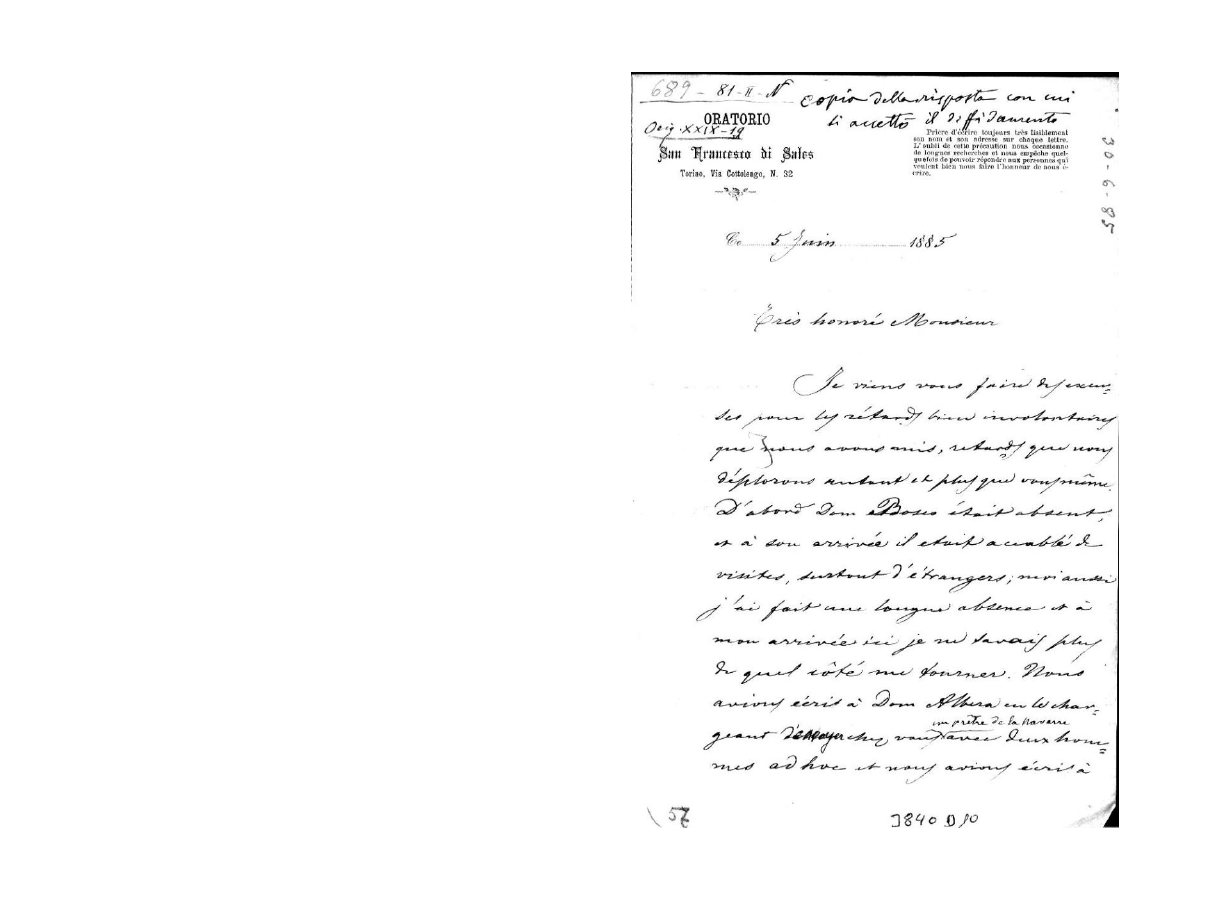 689 - 81-II-N
copia della risposta con cui
si accettò il diffidamento
ORATORIO
Orig. XXIX-19
San Francesco di Sales
Torino, Via Cottolengo, N. 32
Prière d'écrire toujours très lisiblement
son nom et son adresse sur chaque lettre.
L'oubli de cette précaution nous occasionne
de longues recherches et nous empêche quel-
quefois de pouvoir répondre aux personnes qui
veulent bien nous faire l'honneur de nous é-
crire.
30-6-85
Ce 5 Juin 1885
Très honoré Monsieur
Je viens vous faire des excu=
ses pour les rétards bien involontaires
que nous avons mis, retards que nous
déplorons autant et plus que vous même.
D'abord Dom Bosco était absent,
et à son arrivée il etait accablé de
visites, surtout d'étrangers; moi aussi
j'ai fait une longue absence et à
mon arrivée ici je ne savais plus
de quel côté me tourner. Nous
avions écrit à Dom Albera en le char=
geant d'envoyer chez vous un prêtre de la Navarre avec deux hom=
mes ad hoc et nous avions écrit à
57
3840 D10